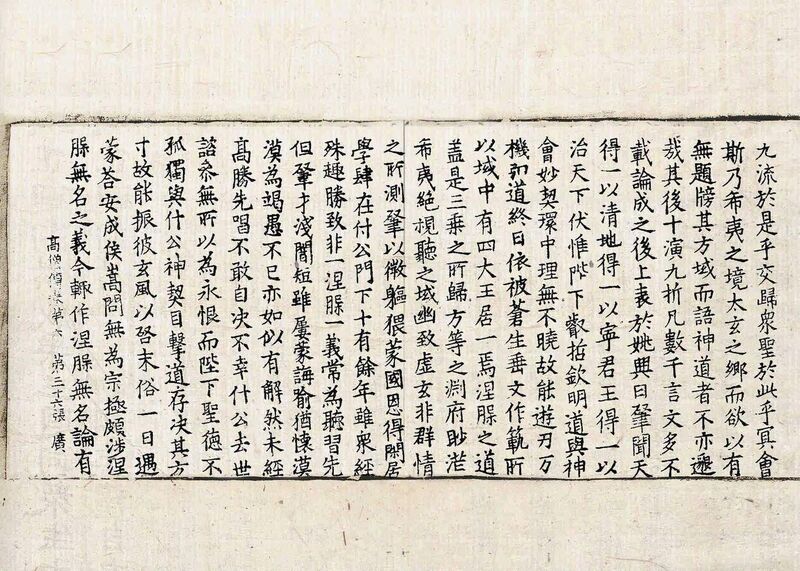 九流於是乎交歸衆聖於此乎冥會
斯乃希夷之境太玄之鄉而欲以有
無題牓其方域而語神道者不亦邈
哉其後十演九折凡數千言文多不
載論成之後上表於姚興曰肇聞天
得一以清地得一以寧君王得一以
治天下伏惟陛下叡哲欽明道與神
會妙契環中理無不曉故能遊刃万
機弘道終日依被蒼生垂文作範所
以域中有四大王居一焉涅槃之道
盖是三乘之所歸方等之淵府眇茫
希夷絕視聽之域幽致虛玄非群情
之所測肇以微軀猥蒙國恩得閑居
學肆在什公門下十有餘年雖衆經
殊趣勝致非一涅槃一義常爲聽習先
但肇才淺闇短雖屢蒙誨喻猶懷漠
漠為竭愚不已亦如似有解然未經
高勝先唱不敢自决不幸什公去世
諮叅無所以為永恨而陛下聖德不
孤獨與什公神契目擊道存决其方
寸故能振彼玄風以啓末俗一日遇
蒙荅安成侯嵩問無為宗極頗涉涅
槃無名之義今輙作涅槃無名論有
高僧傳第六 第三十六張 廣